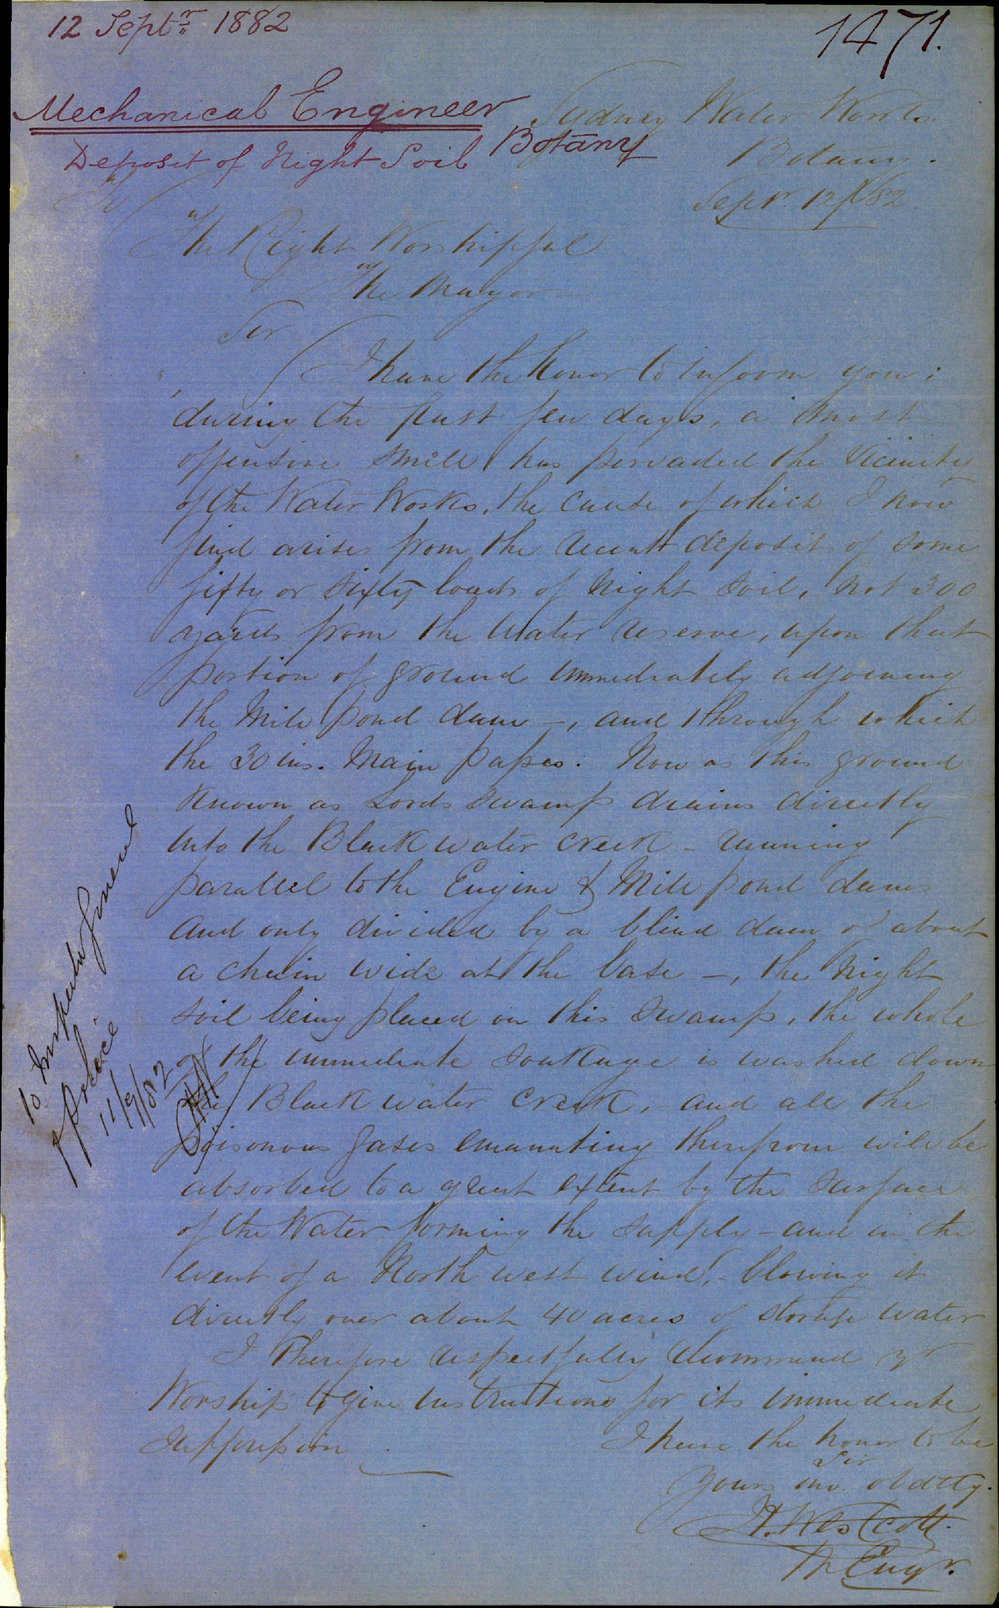 12 Septr 1882
1471.
Mechanical Engineer
Deposit of Night Soil Botany
Sydney Water Works.
Botany.
Septr 12/82.
To
The Right Worshipful
The Mayor
Sir
I have the honor to inform you;
during the past few days, a most
offensive smell has pervaded the Vicinity
of the Water Works, the cause of which I now
find arises from the recent deposit of some
fifty or sixty loads of Night Soil, not 300
yards from the Water reserve, upon that
portion of ground immediately adjoining
the Mill pond dam —, and through which
the 30 ins. Main passes. Now as this ground
known as Lords Swamp drains directly
into the Black water creek - running
parallel to the Engine & Mill pond dams
and only divided by a blind dam of about
a chain wide at the base —, the Night
soil being placed on this swamp, the whole
of the immediate soakage is washed down
the Black water creek, - and all the
poisonous gases emanating therefrom will be
absorbed to a great extent by the surface
of the Water forming the supply - and in the
event of a North west wind, - blowing it
directly over about 40 acres of storage water
I therefore respectfully recommend yr
Worship to give instructions for its immediate
Suppression
I have the honor to be
Sir
Yours mo. obdtly.
H. Westcott.
M Engr.
To Inspector General
of police
11/9/82